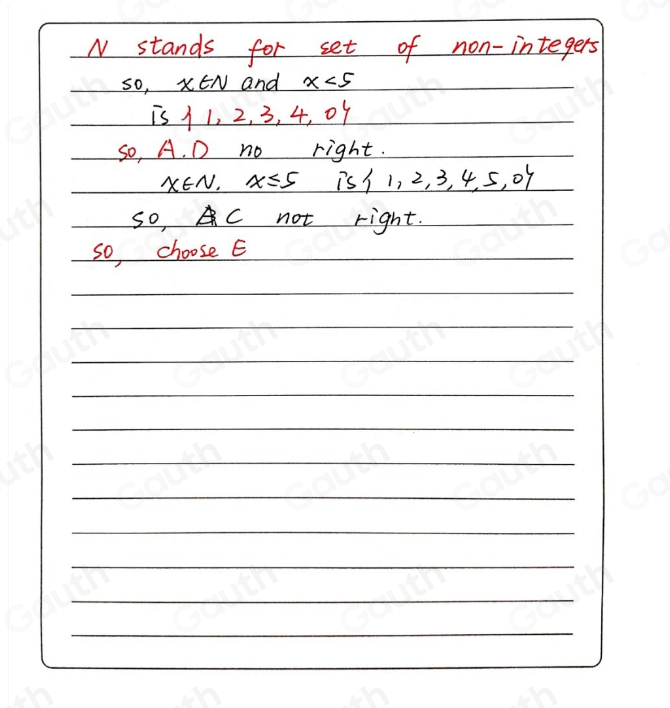 N stands for set of non-integers
so, x∈N and x<5
is { 1, 2, 3, 4, 0}
so, A.D no right.
x∈N. x≤5 is { 1, 2, 3, 4, 5, 0}
so, C not right.
so, choose E